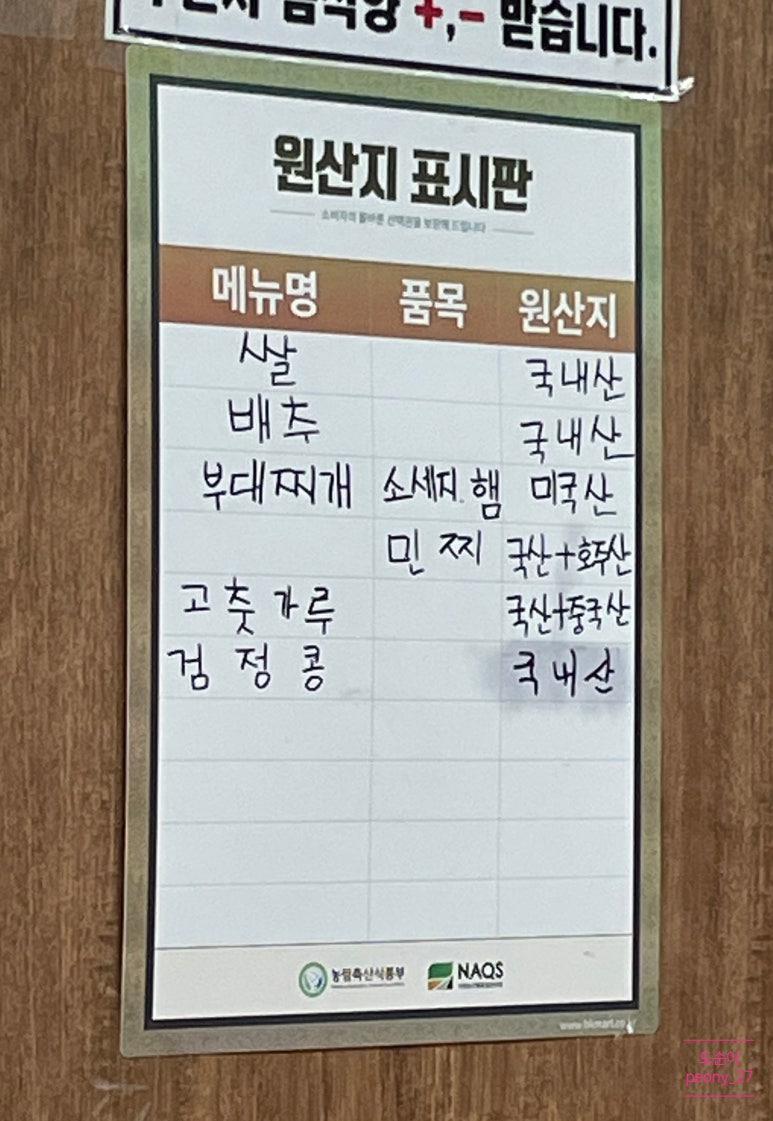 +,- 받습니다.
원산지 표시판
소비자의 올바른 선택권을 보장해 드립니다
메뉴명 품목 원산지
쌀 국내산
배추 국내산
부대찌개 소세지.햄 미국산
민찌 국산+호주산
고춧가루 국산+중국산
검정콩 국내산
농림축산식품부 NAQS
peony_27